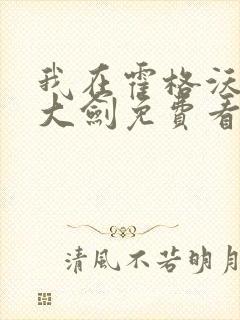 我在霍格沃
大劍免費看
清風不若明月